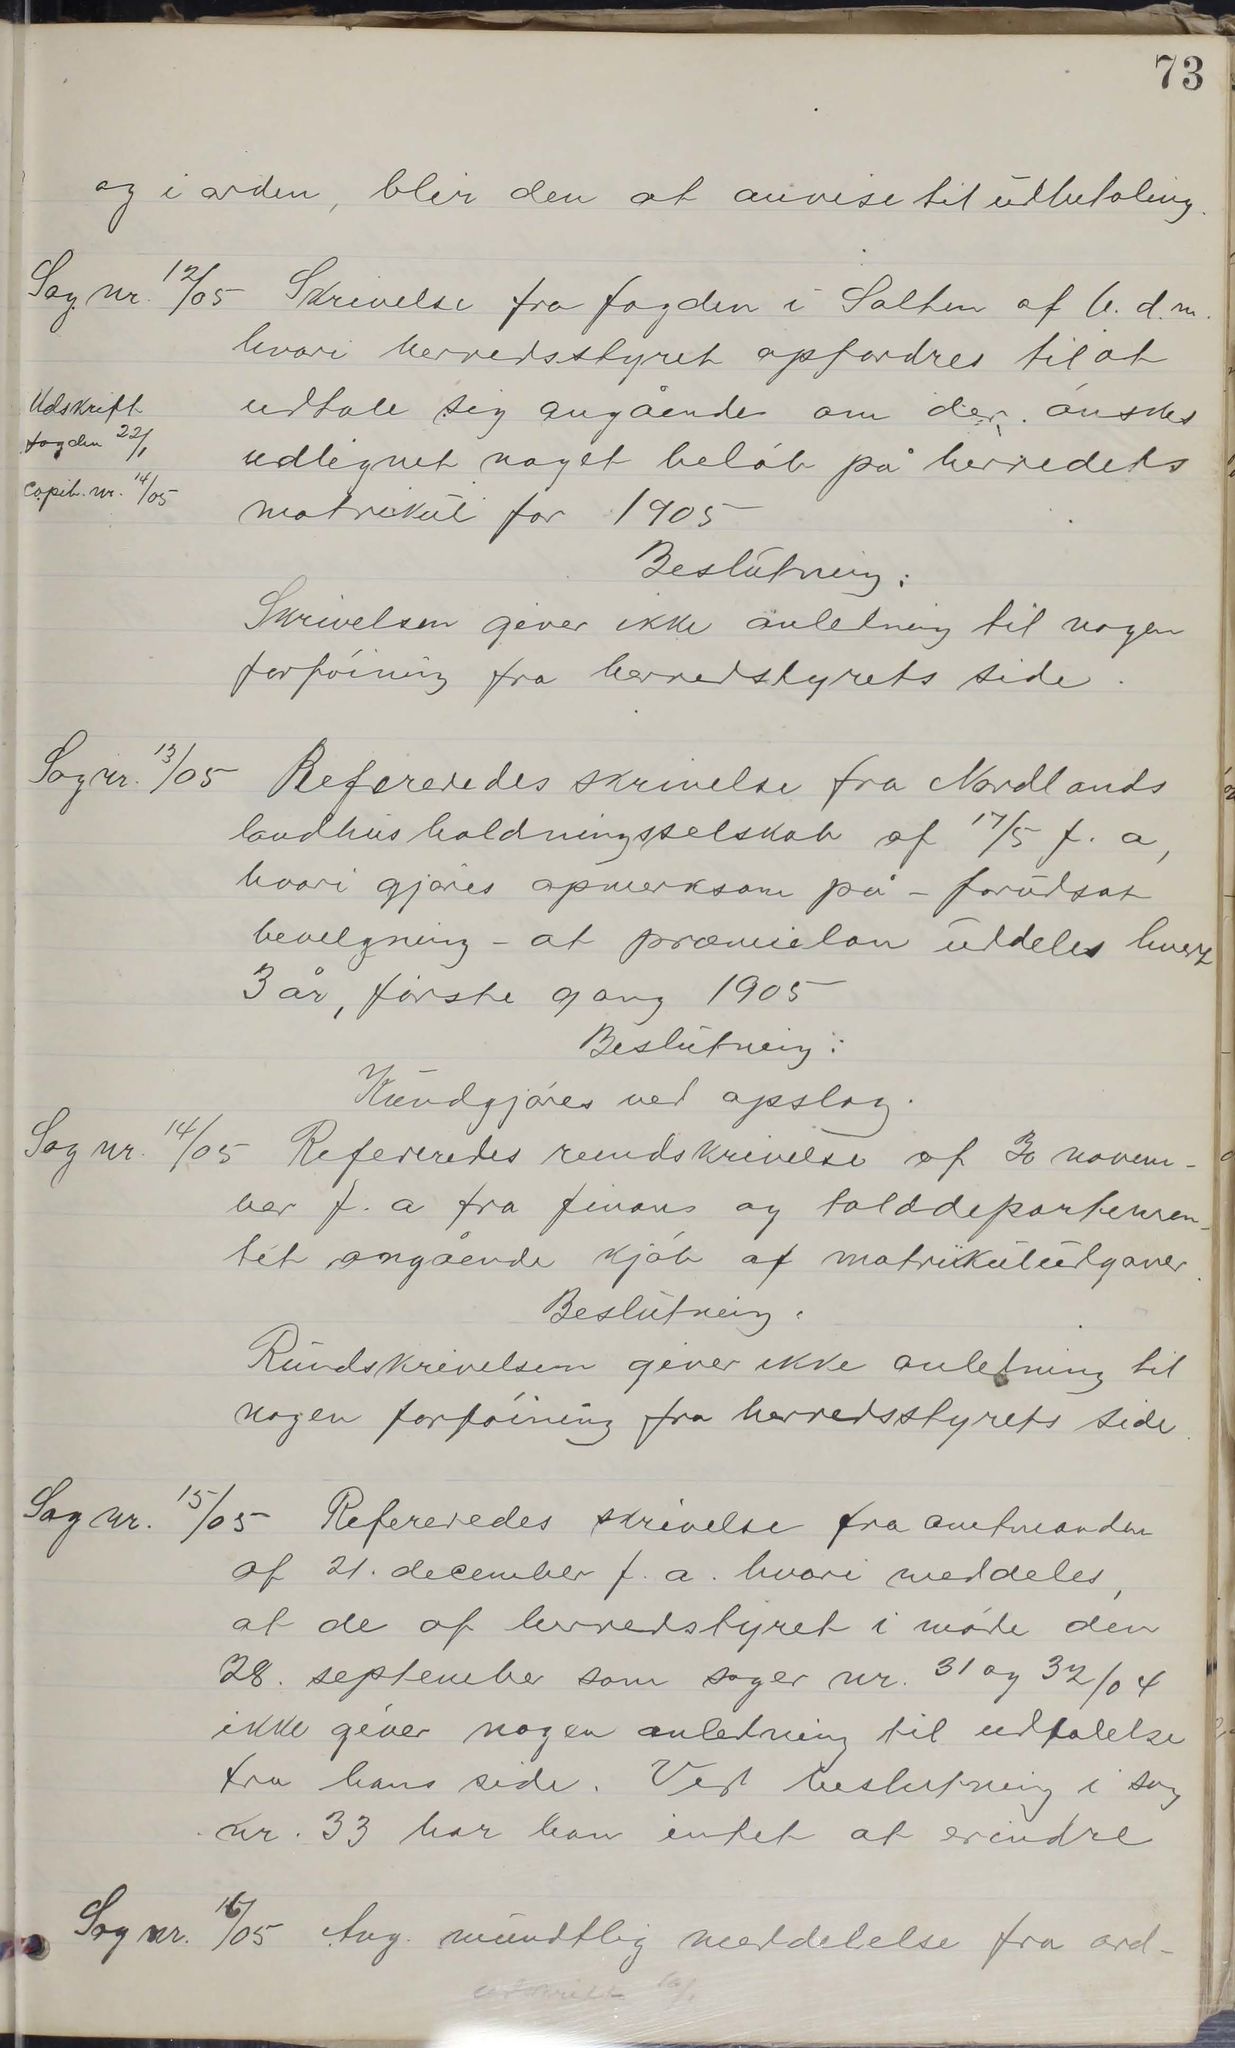 73
og i orden, blir den at anvise til udbetaling.
Sag nr. 12/05 Skrivelse fra fogden i Salten af 6. d.m.
hvori herredsstyret opfordres til at
Udskrift
udtale sig angående om der ønskes
fogden 22/1
udlignet noget beløb på herredets
copib. nr. 14/05
matrikul for 1905
Beslutning:
Skrivelsen giver ikke anledning til nogen
forføining fra herredstyrets side.
Sag nr. 13/05 Refereredes skrivelse fra Nordlands
landhusholdningsselskab af 17/5 f. a,
hvori gjøres opmerksom på - forudsat
bevilgning - at præmieløn uddeles hvert
3 år, første gang 1905
Beslutning:
Kundgjøres ved opslag.
Sag nr. 14/05 Refereredes rundskrivelse af 30 novem-
ber f. a fra finans og tolddepartemen-
tet angående kjøb af matrikuludgaver.
Beslutning.
Rundskrivelsen giver ikke anledning til
nogen forføining fra herredsstyrets side.
Sag nr. 15/05 Refereredes skrivelse fra amtmanden
af 21. december f. a. hvori meddeles,
at de af herredstyret i møde den
28. september som sager nr. 31 og 32/04
ikke giver nogen anledning til udtalelse
fra hans side. Ved beslutning i sag
nr. 33 har han intet at erindre
Sag nr. 16/05 Ang. mundtlig meddelelse fra ord-